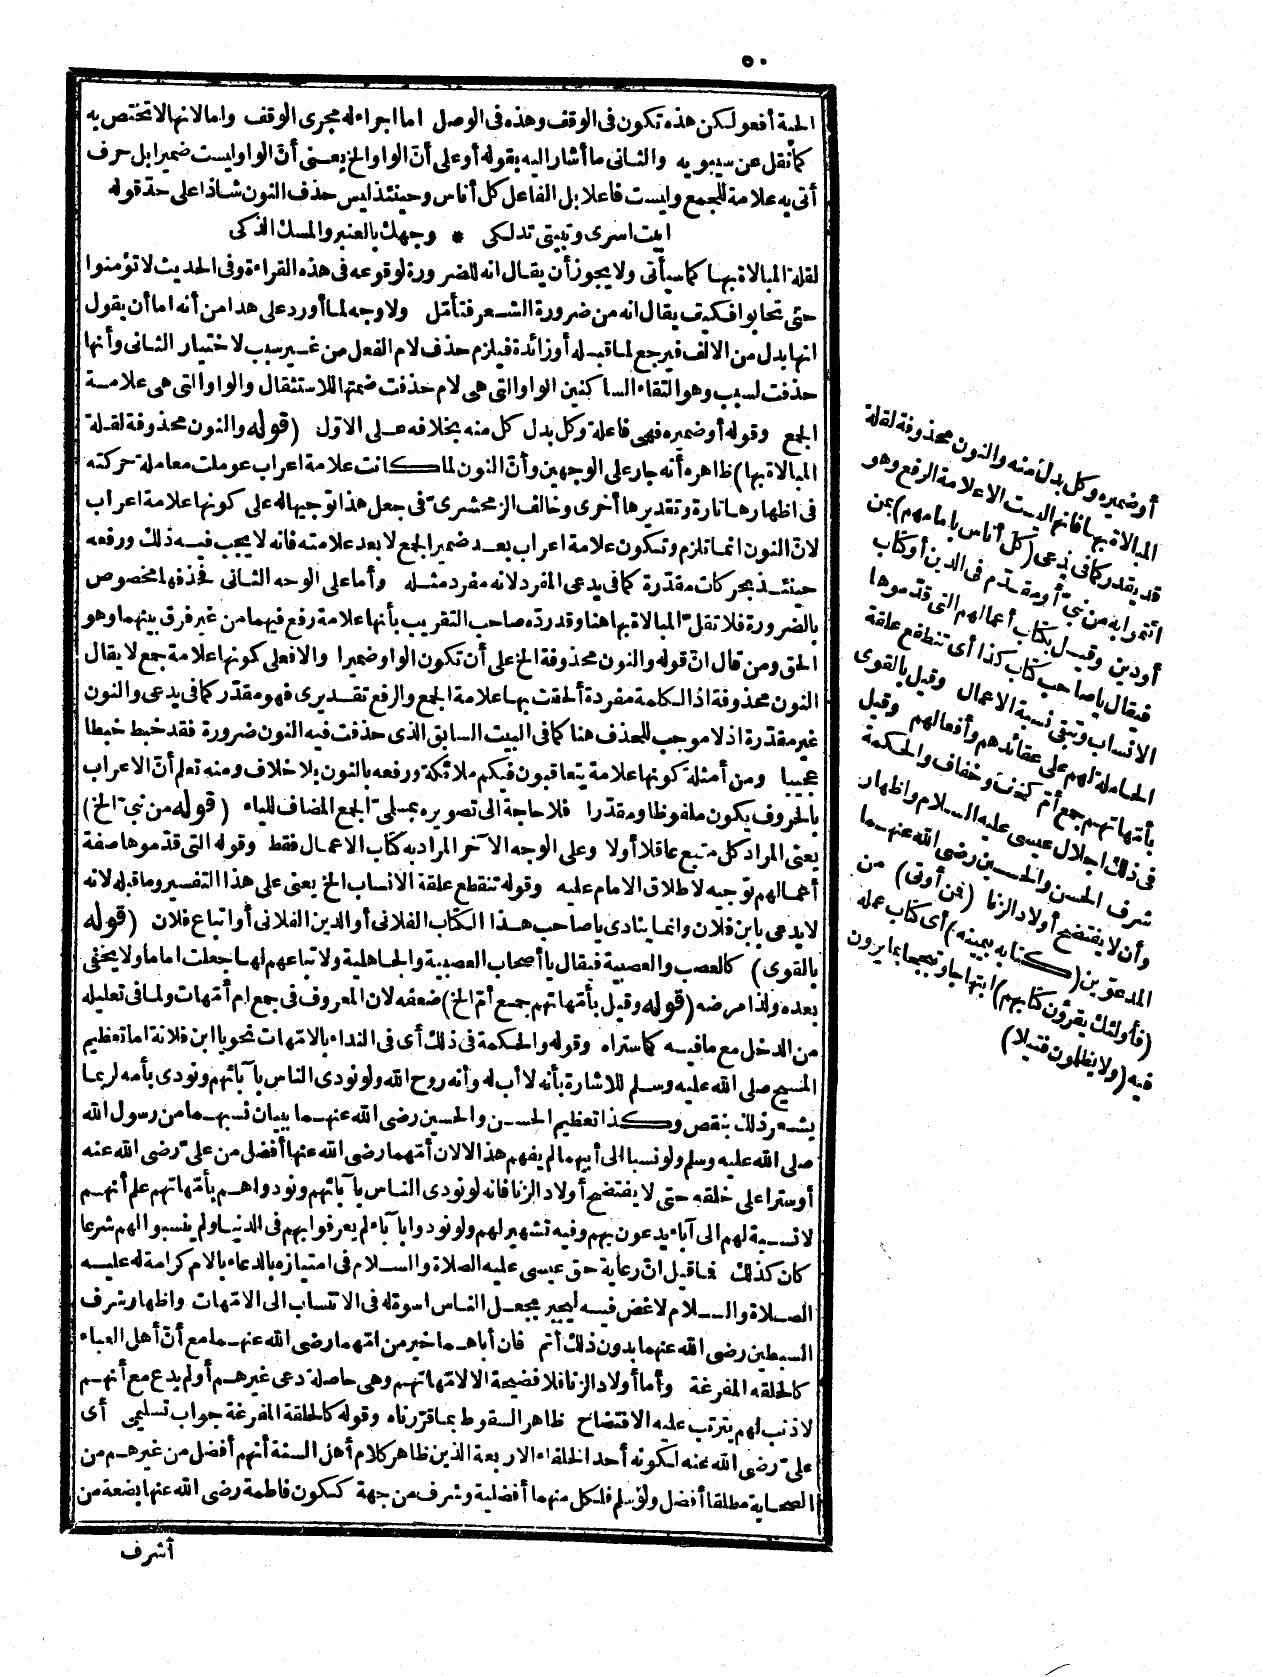 ٥٠
الحية أفعو لكن هذه تكون فى الوقف وهذه فى الوصل اما اجراء له مجرى الوقف واما لانها لا تختص به
كما نقل عن سيبويه والثانى ما أشار اليه بقوله أو على أنّ الواو الخ يعنى أنّ الواو ليست ضميرا بل حرف
أتى به علامة للجمع وليست فاعلا بل الفاعل كل أناس وحينئذ ليس حذف النون شاذا على حدّ قوله
ابيت اسرى وتبيتى تدلكى * وجهك بالعنبر والمسك الذكى
لقلة المبالاة بها كما سيأتى ولا يجوز أن يقال انه للضرورة لوقوعه فى هذه القراءة وفى الحديث لا تؤمنوا
حتى تحابوا فكيف يقال انه من ضرورة الشعر فتأمّل ولا وجه لما أورد على هذا من أنه اما أن يقول
انها بدل من الالف فيرجع لما قبله أو زائدة فيلزم حذف لام الفعل من غير سبب لاختيار الثانى وأنها
حذفت لسبب وهو التقاء الساكنين الواو التى هى لام حذفت ضمتها للاستثقال والواو التى هى علامة
الجمع وقوله أو ضميره فهى فاعلة وكل بدل كل منه بخلافه على الاوّل (قوله والنون محذوفة لقلة
المبالاة بها) ظاهره أنه جار على الوجهين وأنّ النون لما كانت علامة اعراب عوملت معاملة حركته
فى اظهارها تارة وتقديرها أخرى وخالف الزمخشرىّ فى جعل هذا توجيها له على كونها علامة اعراب
لانّ النون انما تلزم وتكون علامة اعراب بعد ضمير الجمع لا بعد علامته فانه لا يجب فيه ذلك ورفعه
حينئذ بحركات مقدّرة كما فى يدعى المفرد لانه مفرد مثله وأما على الوجه الثانى فحذفها مخصوص
بالضرورة فلا تقلّ المبالاة بها هنا وقد ردّه صاحب التقريب بأنها علامة رفع فيهما من غير فرق بينهما وهو
الحق ومن قال انّ قوله والنون محذوفة الخ على أن تكون الواو ضميرا والا فعلى كونها علامة جمع لا يقال
النون محذوفة اذ الكلمة مفردة ألحقت بها علامة الجمع والرفع تقديرى فهو مقدّر كما فى يدعى والنون
غير مقدّرة اذ لا موجب للحذف هنا كما فى البيت السابق الذى حذفت فيه النون ضرورة فقد خبط خبطا
عجيبا ومن أمثلة كونها علامة يتعاقبون فيكم ملائكة ورفعه بالنون بلا خلاف ومنه تعلم أنّ الاعراب
بالحروف يكون ملفوظا ومقدرا فلا حاجة الى تصويره بمسلمىّ الجمع المضاف للياء (قوله من نبىّ الخ)
يعنى المراد كل متبع عاقلا أولا وعلى الوجه الآخر المراد به كتاب الاعمال فقط وقوله التى قدّموها صفة
أعمالهم توجيه لاطلاق الامام عليه وقوله تنقطع علقة الانساب الخ يعنى على هذا التفسير وما قبله لانه
لا يدعى يا ابن فلان وانما ينادى يا صاحب هذا الكتاب الفلانى أو الدين الفلانى أو اتباع فلان (قوله
بالقوى) كالعصب والعصبية فيقال يا أصحاب العصبية والجاهلية ولاتباعهم لها جعلت اماما ولا يخفى
بعده ولذا مرضه (قوله وقيل بأمّهاتهم جمع أمّ الخ) ضعفه لان المعروف فى جمع ام أمّهات ولما فى تعليله
من الدخل مع ما فيه كما ستراه وقوله والحكمة فى ذلك أى فى النداء بالامّهات نحو يا ابن فلانة اما تعظيم
المسيح صلى الله عليه وسلم للاشارة بأنه لا أب له وأنه روح الله ولو نودى الناس بآبائهم ونودى بأمه لربما
يشعر ذلك بنقص وكذا تعظيم الحسن والحسين رضى الله عنهما ببيان نسبهما من رسول الله
صلى الله عليه وسلم ولو نسبا الى أبيهما لم يفهم هذا لا لان أمّهما رضى الله عنها أفضل من علىّ رضى الله عنه
أو سترا على خلقه حتى لا يفتضح أولاد الزنا فانه لو نودى الناس بآبائهم ونودوا هم بأمّهاتهم علم أنهم
لا نسبة لهم الى آباء يدعون بهم وفيه تشهير لهم ولو نودوا بآباء لم يعرفوا بهم فى الدنيا ولم ينسبوا لهم شرعا
كان كذلك فما قيل انّ رعاية حق عيسى عليه الصلاة والسلام فى امتيازه بالدعاء بالام كرامة له عليه
الصلاة والسلام لا غض فيه ليجبر بجعل الناس اسوة له فى الانتساب الى الامّهات واظهار شرف
السبطين رضى الله عنهما بدون ذلك أتم فان أباهما خير من امّهما رضى الله عنهما مع أنّ أهل العباء
كالحلقه المفرغة وأما أولاد الزنا فلا فضيحة الا لامّهاتهم وهى حاصلة دعى غيرهم أو لم يدع مع أنهم
لا ذنب لهم يترتب عليه الافتضاح ظاهر السقوط بما قرّرناه وقوله كالحلقة المفرغة جواب تسليمى أى
علىّ رضى الله عنه لكونه أحد الخلفاء الاربعة الذين ظاهر كلام أهل السنة أنهم أفضل من غيرهم من
الصحابة مطلقا أفضل ولو سلم فلكل منهما أفضلية وشرف من جهة ككون فاطمة رضى الله عنها بضعة من
أشرف
أو ضميره وكل بدل منه والنون محذوفة لقلة
المبالاة بها فانها ليست الا علامة الرفع وهو
قد يقدر كما فى يدعى (كل أناس بامامهم) بمن
ائتموا به من نبىّ أو مقدّم فى الدين أو كتاب
أو دين وقيل بكتاب أعمالهم التى قدّموها
فيقال يا صاحب كتاب كذا أى تنقطع علقة
الانساب وتبقى نسبة الاعمال وقيل بالقوى
الحاملة لهم على عقائدهم وأفعالهم وقيل
بأمّهاتهم جمع أمّ كخف وخفاف والحكمة
فى ذلك اجلال عيسى عليه السلام واظهار
شرف الحسن والحسين رضى الله عنهما
وأن لا يفتضح أولاد الزنا (فمن أوتى) من
المدعوّين (كتابه بيمينه) أى كتاب عمله
(فأولئك يقرؤن كتابهم) ابتهاجا وتبجحا بما يرون
فيه (ولا يظلمون فتيلا)